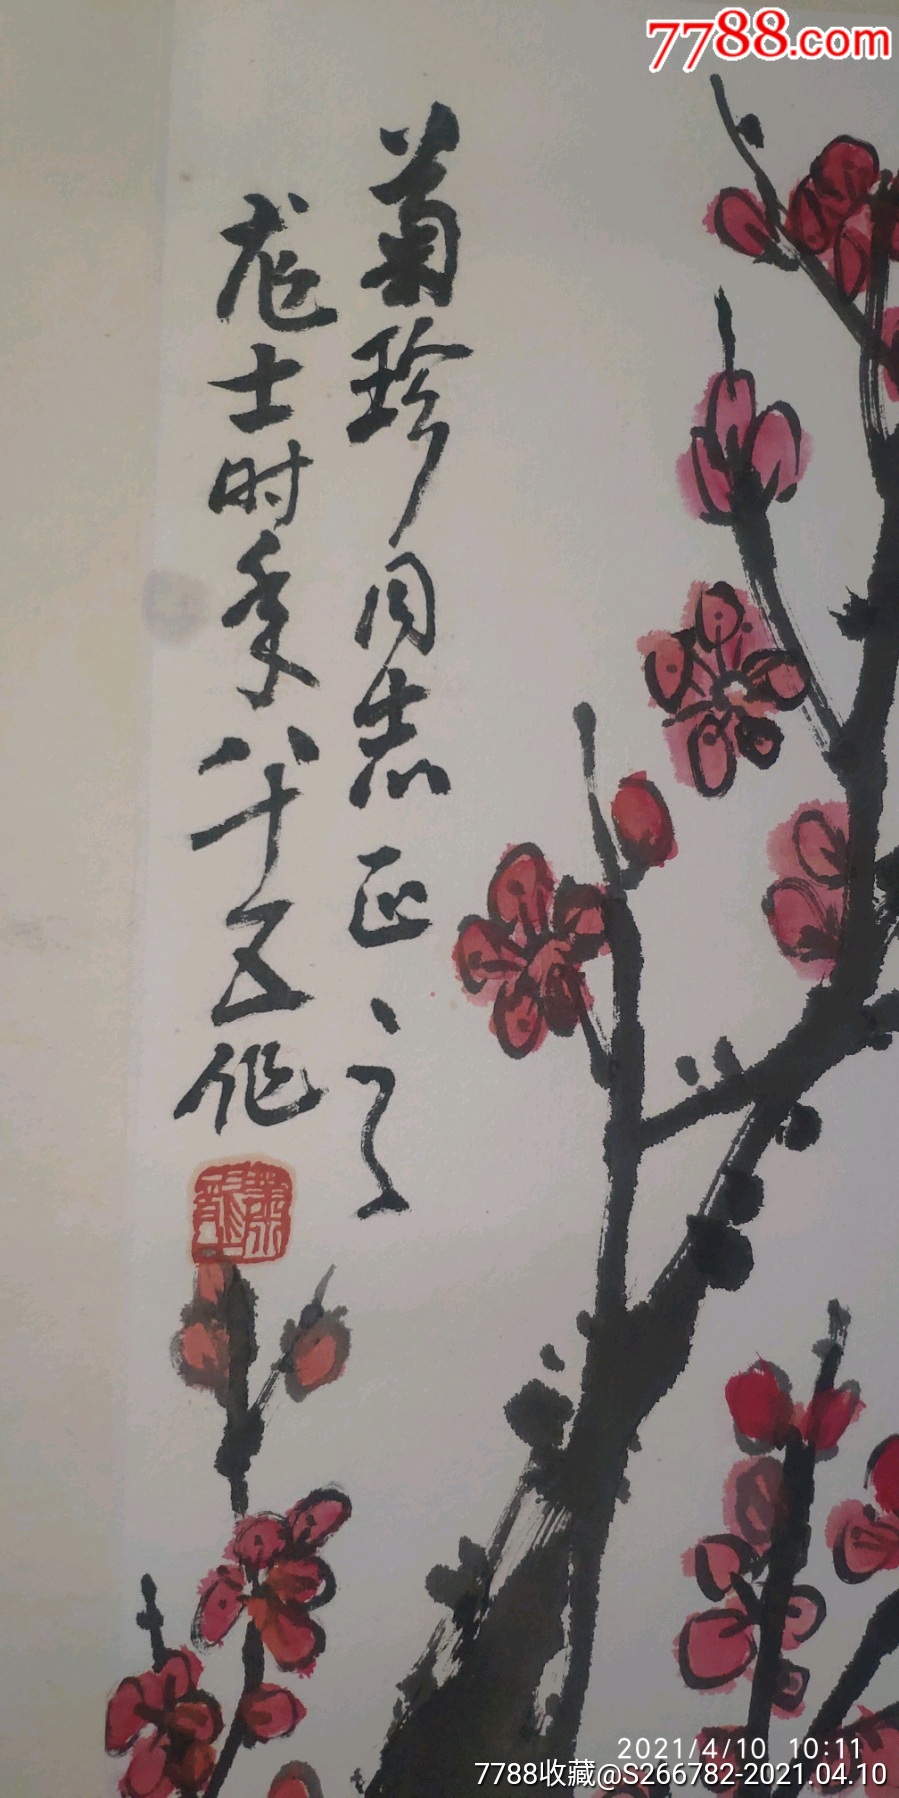 7788.com
菊珍同志正之
龙士时年八十五作
萧龙士
2021/4/10 10:11
7788收藏@S266782-2021.04.10